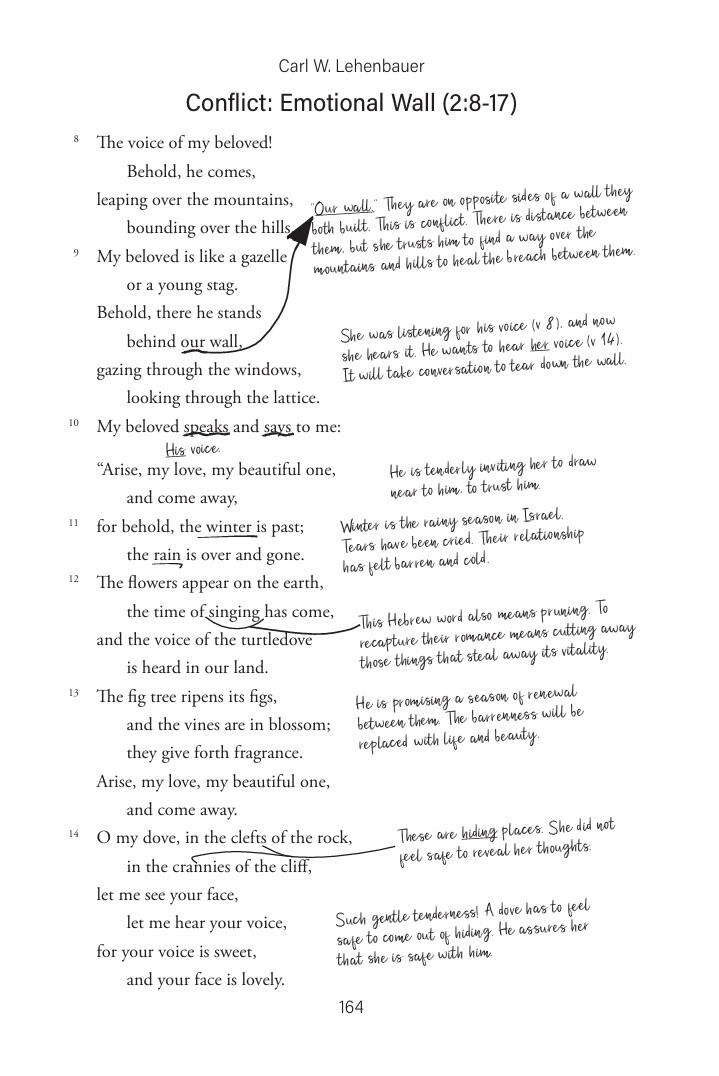 Carl W. Lehenbauer
Conflict: Emotional Wall (2:8-17)
8 The voice of my beloved!
Behold, he comes,
leaping over the mountains,
bounding over the hills.
9 My beloved is like a gazelle
or a young stag.
Behold, there he stands
behind our wall,
gazing through the windows,
looking through the lattice.
10 My beloved speaks and says to me:
“Arise, my love, my beautiful one,
and come away,
11 for behold, the winter is past;
the rain is over and gone.
12 The flowers appear on the earth,
the time of singing has come,
and the voice of the turtledove
is heard in our land.
13 The fig tree ripens its figs,
and the vines are in blossom;
they give forth fragrance.
Arise, my love, my beautiful one,
and come away.
14 O my dove, in the clefts of the rock,
in the crannies of the cliff,
let me see your face,
let me hear your voice,
for your voice is sweet,
and your face is lovely.
"Our wall." They are on opposite sides of a wall they
both built. This is conflict. There is distance between
them, but she trusts him to find a way over the
mountains and hills to heal the breach between them.
She was listening for his voice (v 8), and now
she hears it. He wants to hear her voice (v 14).
It will take conversation to tear down the wall.
His voice.
He is tenderly inviting her to draw
near to him, to trust him.
Winter is the rainy season in Israel.
Tears have been cried. Their relationship
has felt barren and cold.
This Hebrew word also means pruning. To
recapture their romance means cutting away
those things that steal away its vitality.
He is promising a season of renewal
between them. The barrenness will be
replaced with life and beauty.
These are hiding places. She did not
feel safe to reveal her thoughts.
Such gentle tenderness! A dove has to feel
safe to come out of hiding. He assures her
that she is safe with him.
164